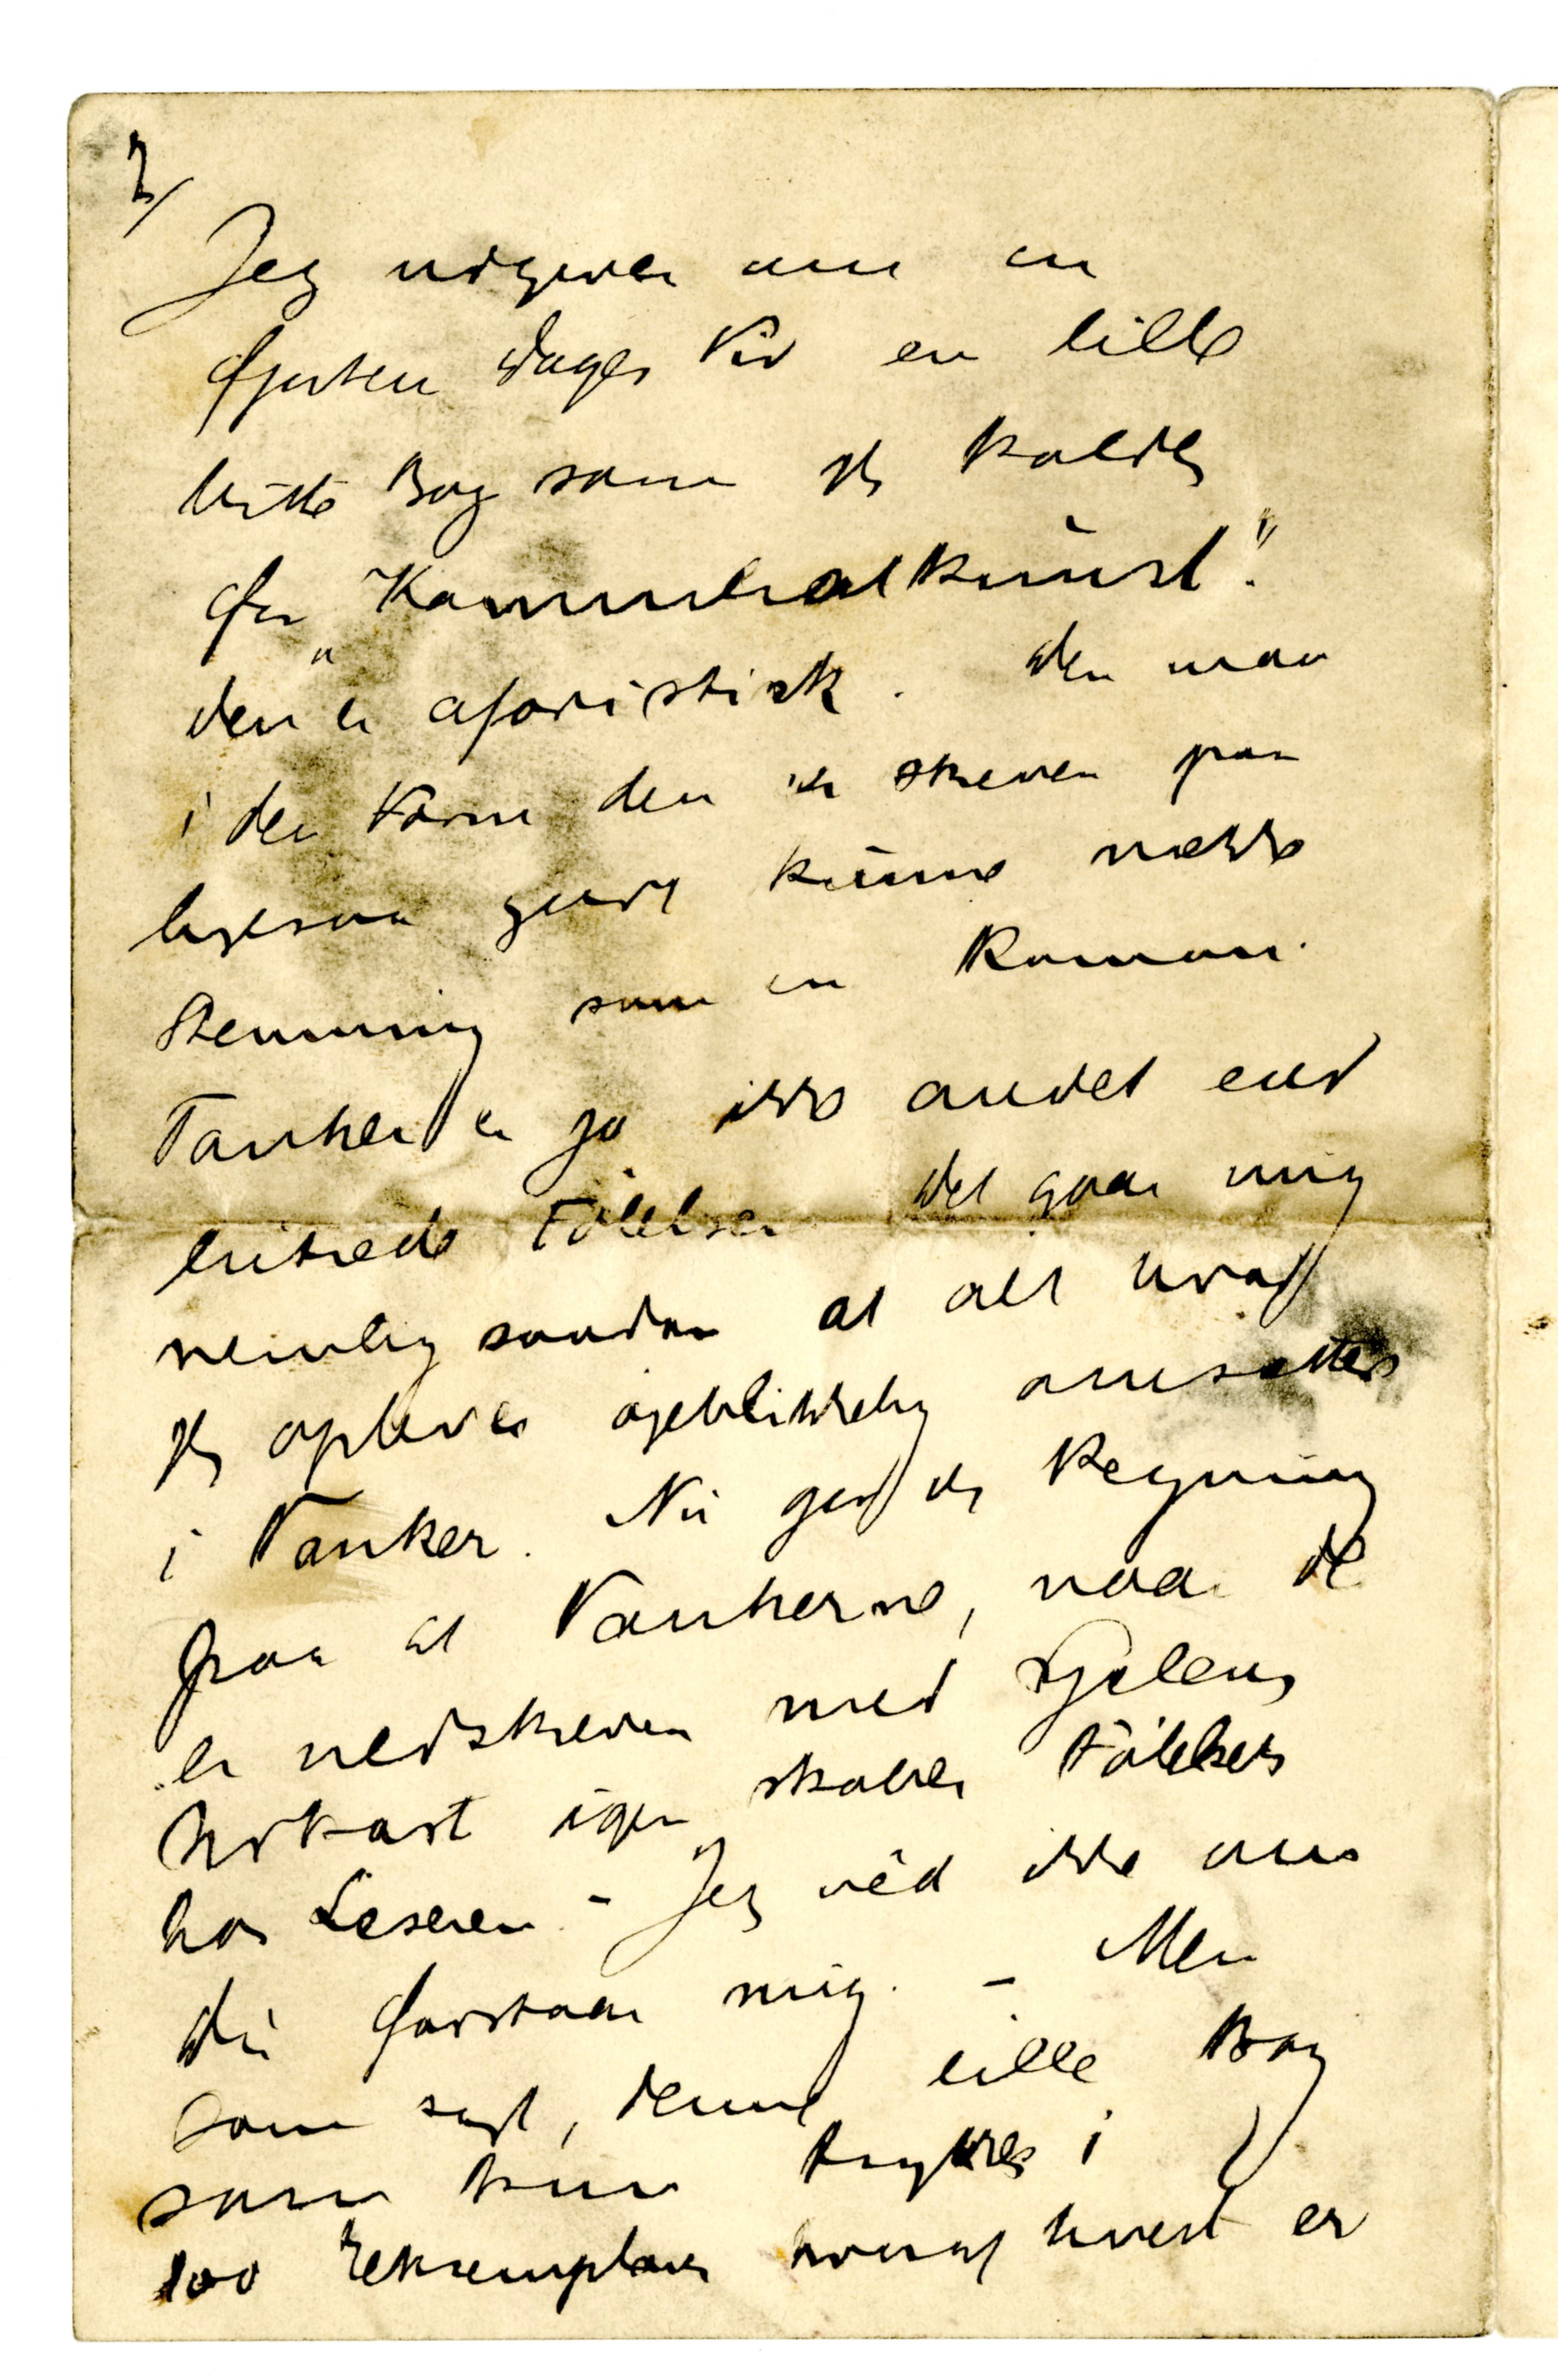 2/
Jeg udgiver om en
fjorten Dages Tid en lille
bitte Bog som jeg kalder
for „Kammeratkunst".
den er aforistisk. den maa
i den Form den er skreven paa
ligesaa godt kunne vække
Stemning som en Roman.
Tanker er jo ikke andet end
Følelser det gaar mig
nemlig saadan at alt hvad
jeg oplever øjeblikkelig omsættes
i Tanker. Nu gør jeg Regning
paa at Tankerne, naar de
er nedskreven med Sjælens
igen skaber Følelser
hos Læseren. - Jeg véd ikke om
du forstaar mig. - Men
som sagt, denne lille Bog
som kun trykkes i
100 Eksemplarer hvoraf hvert er